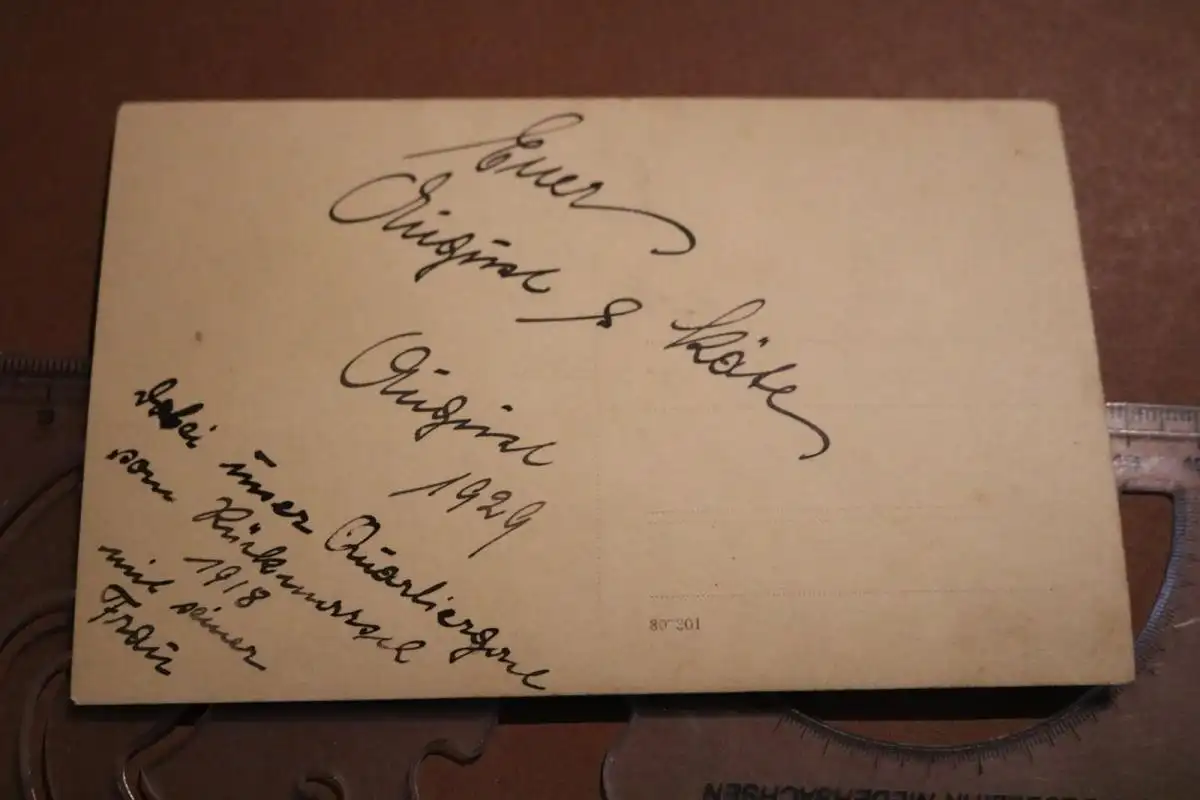 Euer
August
& Käte
August
1929
Dabei unser Quartiergast
vom Rückmarsch
1918
mit seiner
Frau
80-201
NIEDERSACHSEN